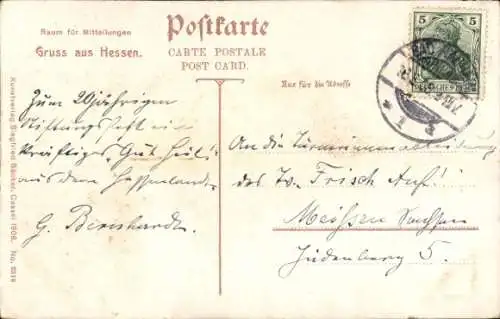 Raum für Mitteilungen
Gruss aus Hessen.
Postkarte
CARTE POSTALE
POST CARD.
Nur für die Adresse
5 5
BAD
Zum 20jährigen
Stiftungsfest ein
kräftiges "Gut Heil!"
aus dem Hessenlande
G. Bernhardt.
An die Turnerinnenabteilung
des Tv. Frisch Auf!
Meissen Sachsen
Jüdenberg 5.
Kunstverlag Siegfried Cassel 1906. No.